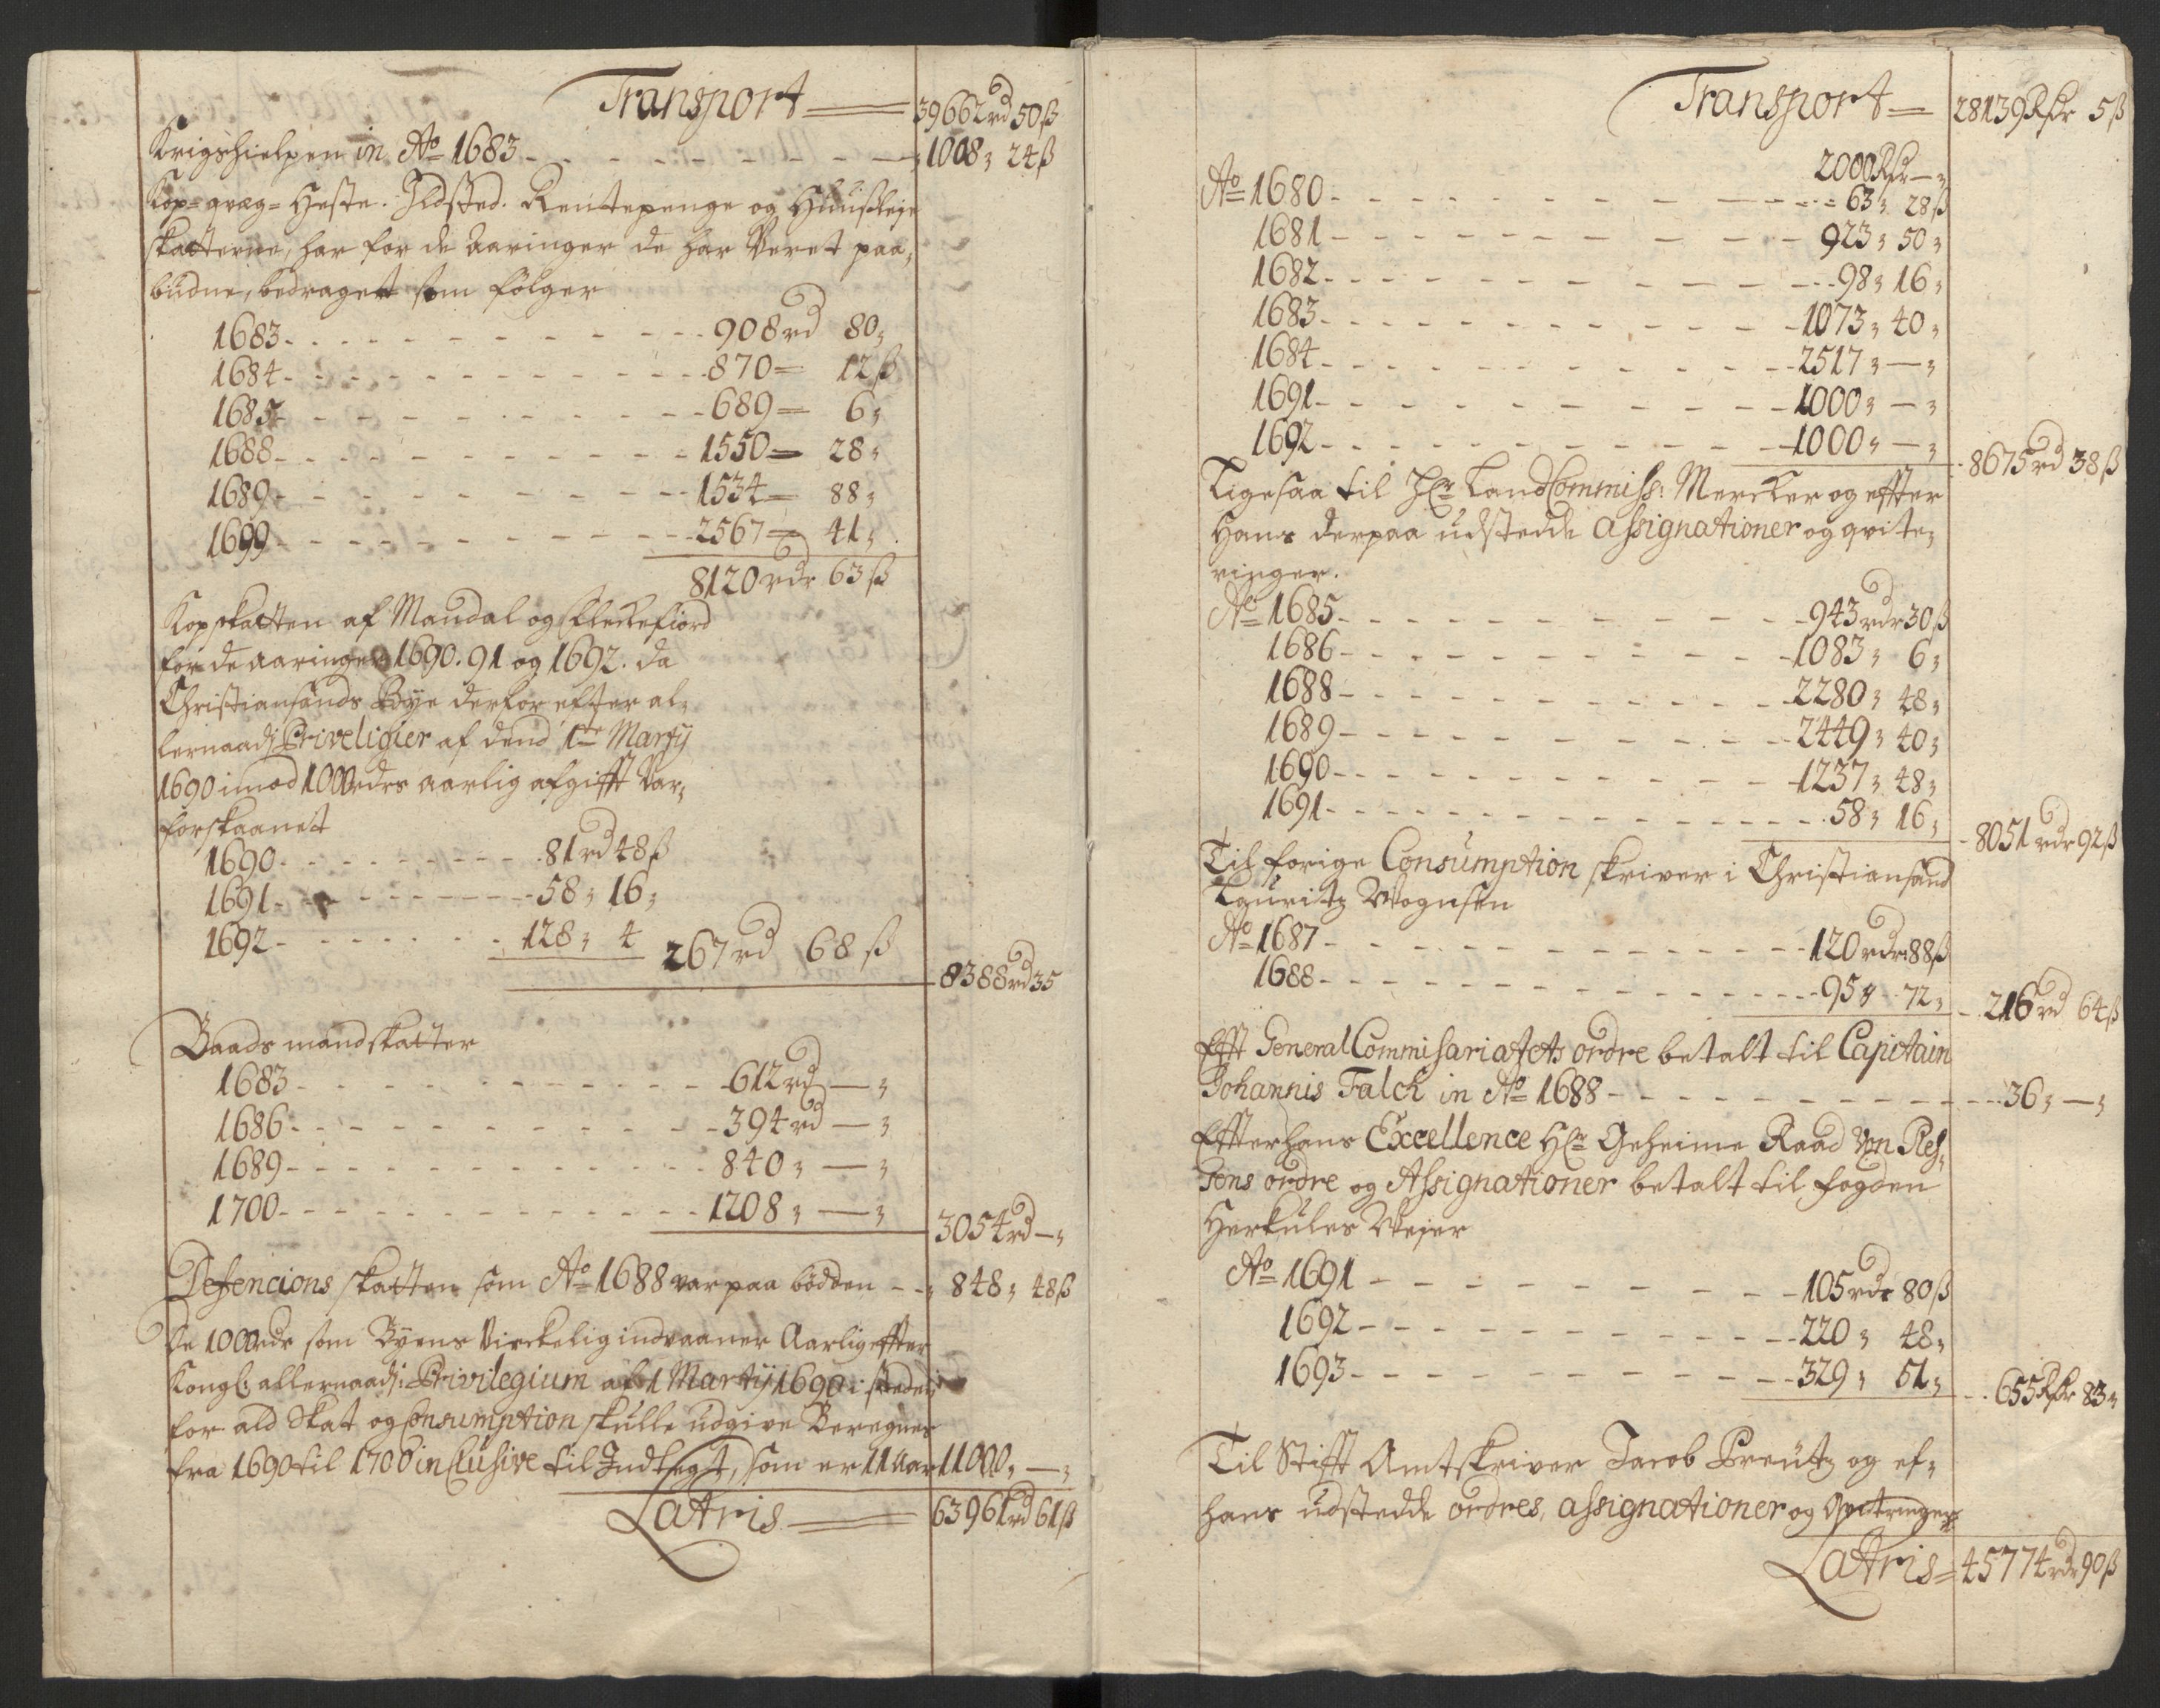 Transport 39662 rd 50 ß
Krigshielpen in Ao 1683 1008 „ 24 ß
Kop= qvæg= Heste. Ildsted. Rentepenge og Huusleje
skatterne, har for de Aaringer de har Veret paa„
budne, bedraget som følger
1683 908 rd 80 „
1684 870 = 12 ß
1685 689 = 6 „
1688 1550 = 28 „
1689 1534 = 88 „
1699 2567 = 41 „
8120 rdr 63 ß
Kopskatten af Mandal og Fleckefiord
for de aaringer 1690. 91 og 1692. da
Christiansands Bÿe derfor efter al„
lernaads: Priveligier af dend 1te Martij
1690 imod 1000 rdrs aarlig afgifft Var„
forskaanet
1690 81 rd 48 ß
1691 58 „ 16 „
1692 128 „ 4 267 rd 68 ß
8388 rd 35
Baadsmandskatter
1683 612 rd — „
1686 394 rd — „
1689 840 „ — „
1700 1208 „ — „
3054 rd — „
Defencions skatten som Ao 1688 var paa bödden 848 „ 48 ß
De 1000 rdr som Byens Virckelig indvaaner Aarlig effter
Kongl: allernaads: Privilegium af 1 Martij 1690 i steden
for ald Skat og Consumption skulle udgive Beregnes
fra 1690 til 1700 inclusive til Indtegt, som er 11 Aar 11000 „ — „
Latris 63961 rd 61 ß
Transport 28139 Rdr 5 ß
2000 Rdr — „
Ao 1680 63 „ 28 ß
1681 923 „ 50 „
1682 98 „ 16 „
1683 1073 „ 40 „
1684 2517 „ — „
1691 1000 „ — „
1692 1000 „ — „
8675 rd 38 ß
Ligesaa til Hr Land Commiss: Mercker og effter
Hans derpaa udstedde assignationer og qvite„
ringer.
Ao 1685 943 rdr 30 ß
1686 1083 „ 6 „
1688 2280 „ 48 „
1689 2449 „ 40 „
1690 1237 „ 48 „
1691 58 „ 16 „
8051 rdr 92 ß
Til forige Consumption skriver i Christiansand
Lauritz Wognsen
Ao 1687 120 rdr 88 ß
1688 95 „ 72 „
216 rd 64 ß
Efft General Commisariatets ordre betalt til Capitain
Johannis Falck in Ao 1688 36 „ — „
Effter hans Excellence Hr Geheime Raad Von Res„
sens ordre og Assignationer betalt til fogden
Herkules Weier
Ao 1691 105 rdr 80 ß
1692 220 „ 48 „
1693 329 „ 51 „
655 Rdr 83 „
Til Stifft Amtskriver Jacob Preutz og ef„
hans udstedde ordres, assignationer og Qvitringer
Latris 45774 rdr 90 ß